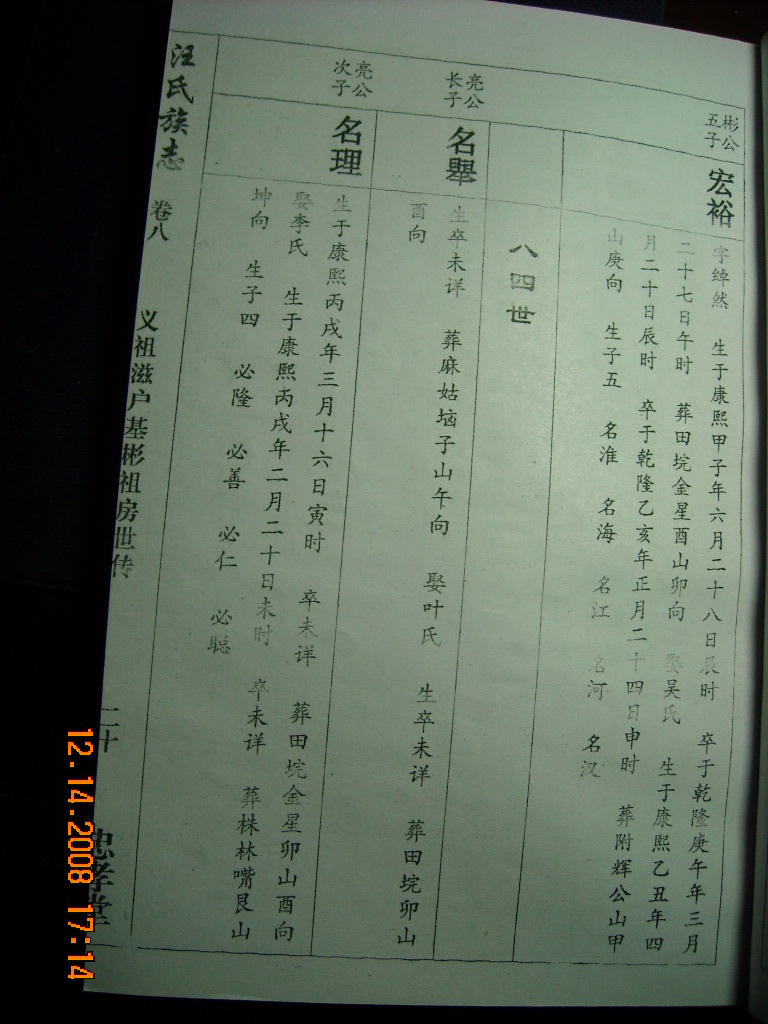 彬公
五子
宏裕
字绰然　生于康熙甲子年六月二十八日辰时　卒于乾隆庚午年三月
二十七日午时　葬田垸金星酉山卯向　娶吴氏　生于康熙乙丑年四
月二十日辰时　卒于乾隆乙亥年正月二十四日申时　葬附辉公山甲
山庚向　生子五　名淮　名海　名江　名河　名汉
八四世
亮公
长子
名舉
生卒未详　葬麻姑垴子山午向　娶叶氏　生卒未详　葬田垸卯山
酉向
亮公
次子
名理
生于康熙丙戌年三月十六日寅时　卒未详　葬田垸金星卯山酉向
娶李氏　生于康熙丙戌年二月二十日未时　卒未详　葬株林嘴艮山
坤向　生子四　必隆　必善　必仁　必聪
汪氏族志　卷八　义祖滋户基彬祖房世传　二十　忠孝堂
12.14.2008 17:14